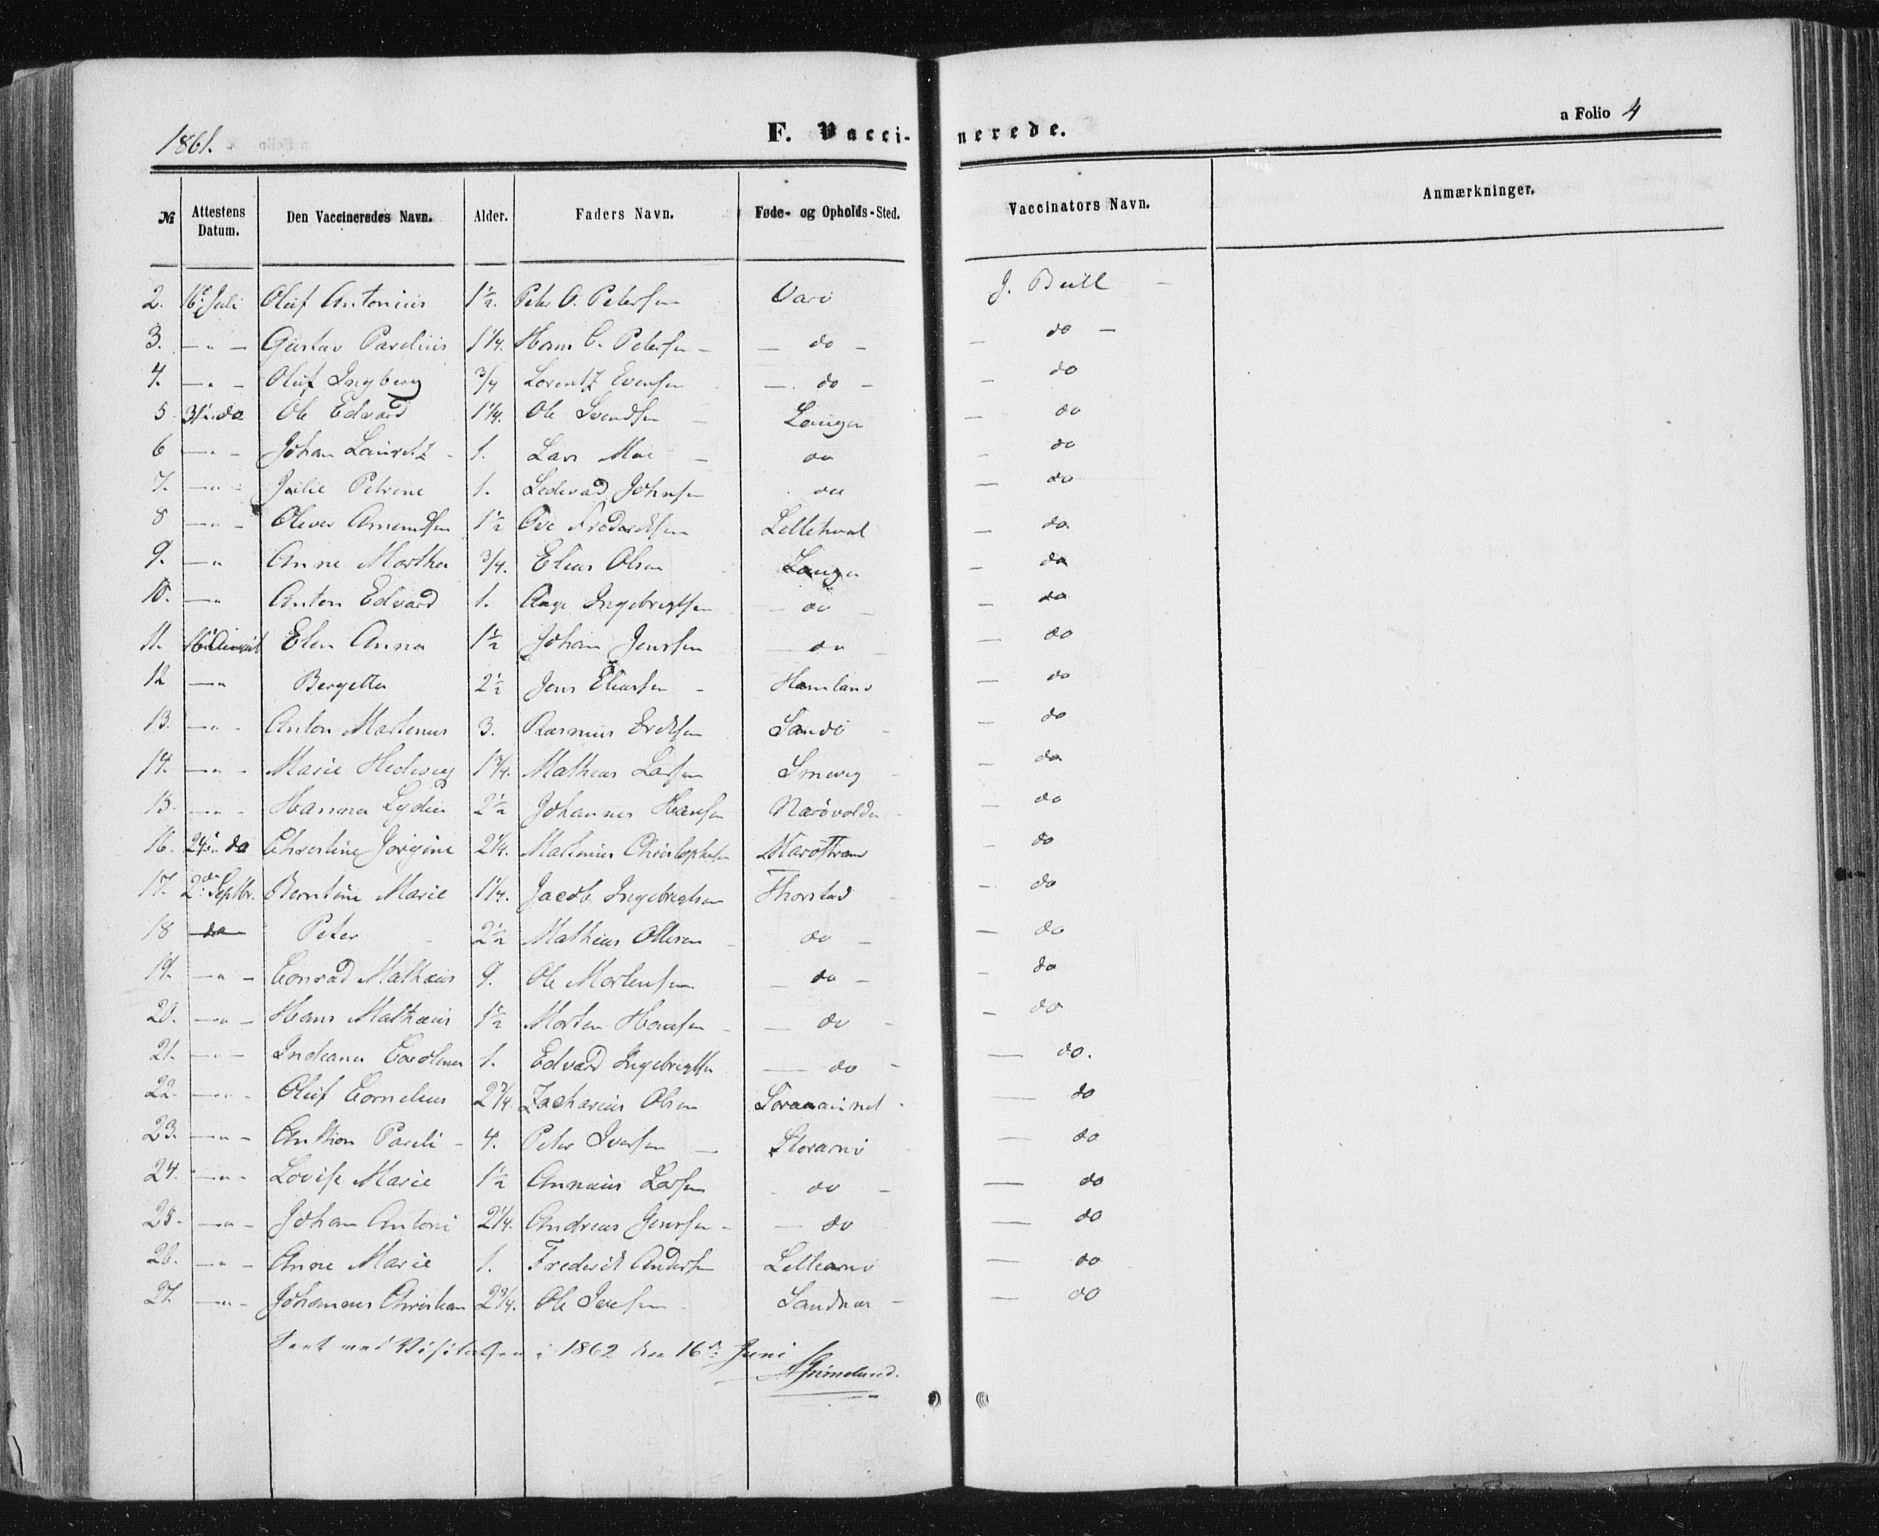 1861.
F. Vaccinerede.
a Folio 4
№ Attestens Datum. Den Vaccineredes Navn. Alder. Faders Navn. Føde- og Opholds-Sted. Vaccinators Navn. Anmærkninger.
2. 16 Juli Oluf Antonius 1½. Peter O. Petersen Varø J. Bull
3. — " — Gustav Parelius 1¼. Hans C. Petersen — do — — do —
4. — " — Oluf Ingberg ¾ Lorentz Evensen — do — — do
5. 31 do Ole Edvard 1¼. Ole Svendsen Lauga — do
6 — " — Johan Lauritz 1. Lars Moe do — do
7. — " — Julie Petrine 1. Ledevad Johnsen do — do
8 — " — Oliver Amundsen 1½ Ove Frederiksen — do
9. — " Anne Martha ¾. Elias Olsen Lauga — do
10. — " Anton Edvard 1. Aage Ingebrigtsen — do — — do
11. 16 Elen Anna 1½ Johan Jenssen — do — — do
12 — " Bergette 2½ Jens Eliassen Hamland — do
13. — " - Anton Martenus 3. Rasmus Eriksen Sandø — do
14. — " - Marie Hedevig 1¾. Mathias Larsen Smevig — do
15. — " - Hanna Lydia 2½ Johannes Hansen Nærøvolden — do
16. 24 do Christine Jørgine 2¼. Martinus Christophersen — do
17. 2den Septbr. Berntine Marie 1¼. Jacob Ingebrigtsen Thorstad — do
18 do Peter 2½ Mathias Olsen do — — do
19. — " — Conrad Mathæus 9. Ole Mortensen — do — — do
20. — " — Hans Mathæus 1½ Morten Hansen — do — — do
21. — " — Indiana Carolina 1. Edvard Ingebrigtsen — do — — do.
22. — " — Oluf Cornelius 2¾. Zacharias Olsen — do
23. — " — Anthon Pareli 4. Peter Iversen Storarnø — do
24. — " — Lovise Marie 1½ Annæus Larsen do — — do
25. — " — Johan Antoni 2¼. Andreas Jenssen — do — do
26. — " — Anne Marie 1. Frederik Andersen Lillearnø — do
27. — " — Johannes Christian 2¾. Ole Iversen Sandnes — do
Seet ved Visitatsen i 1862 den 16de Juni
A Grimelund.